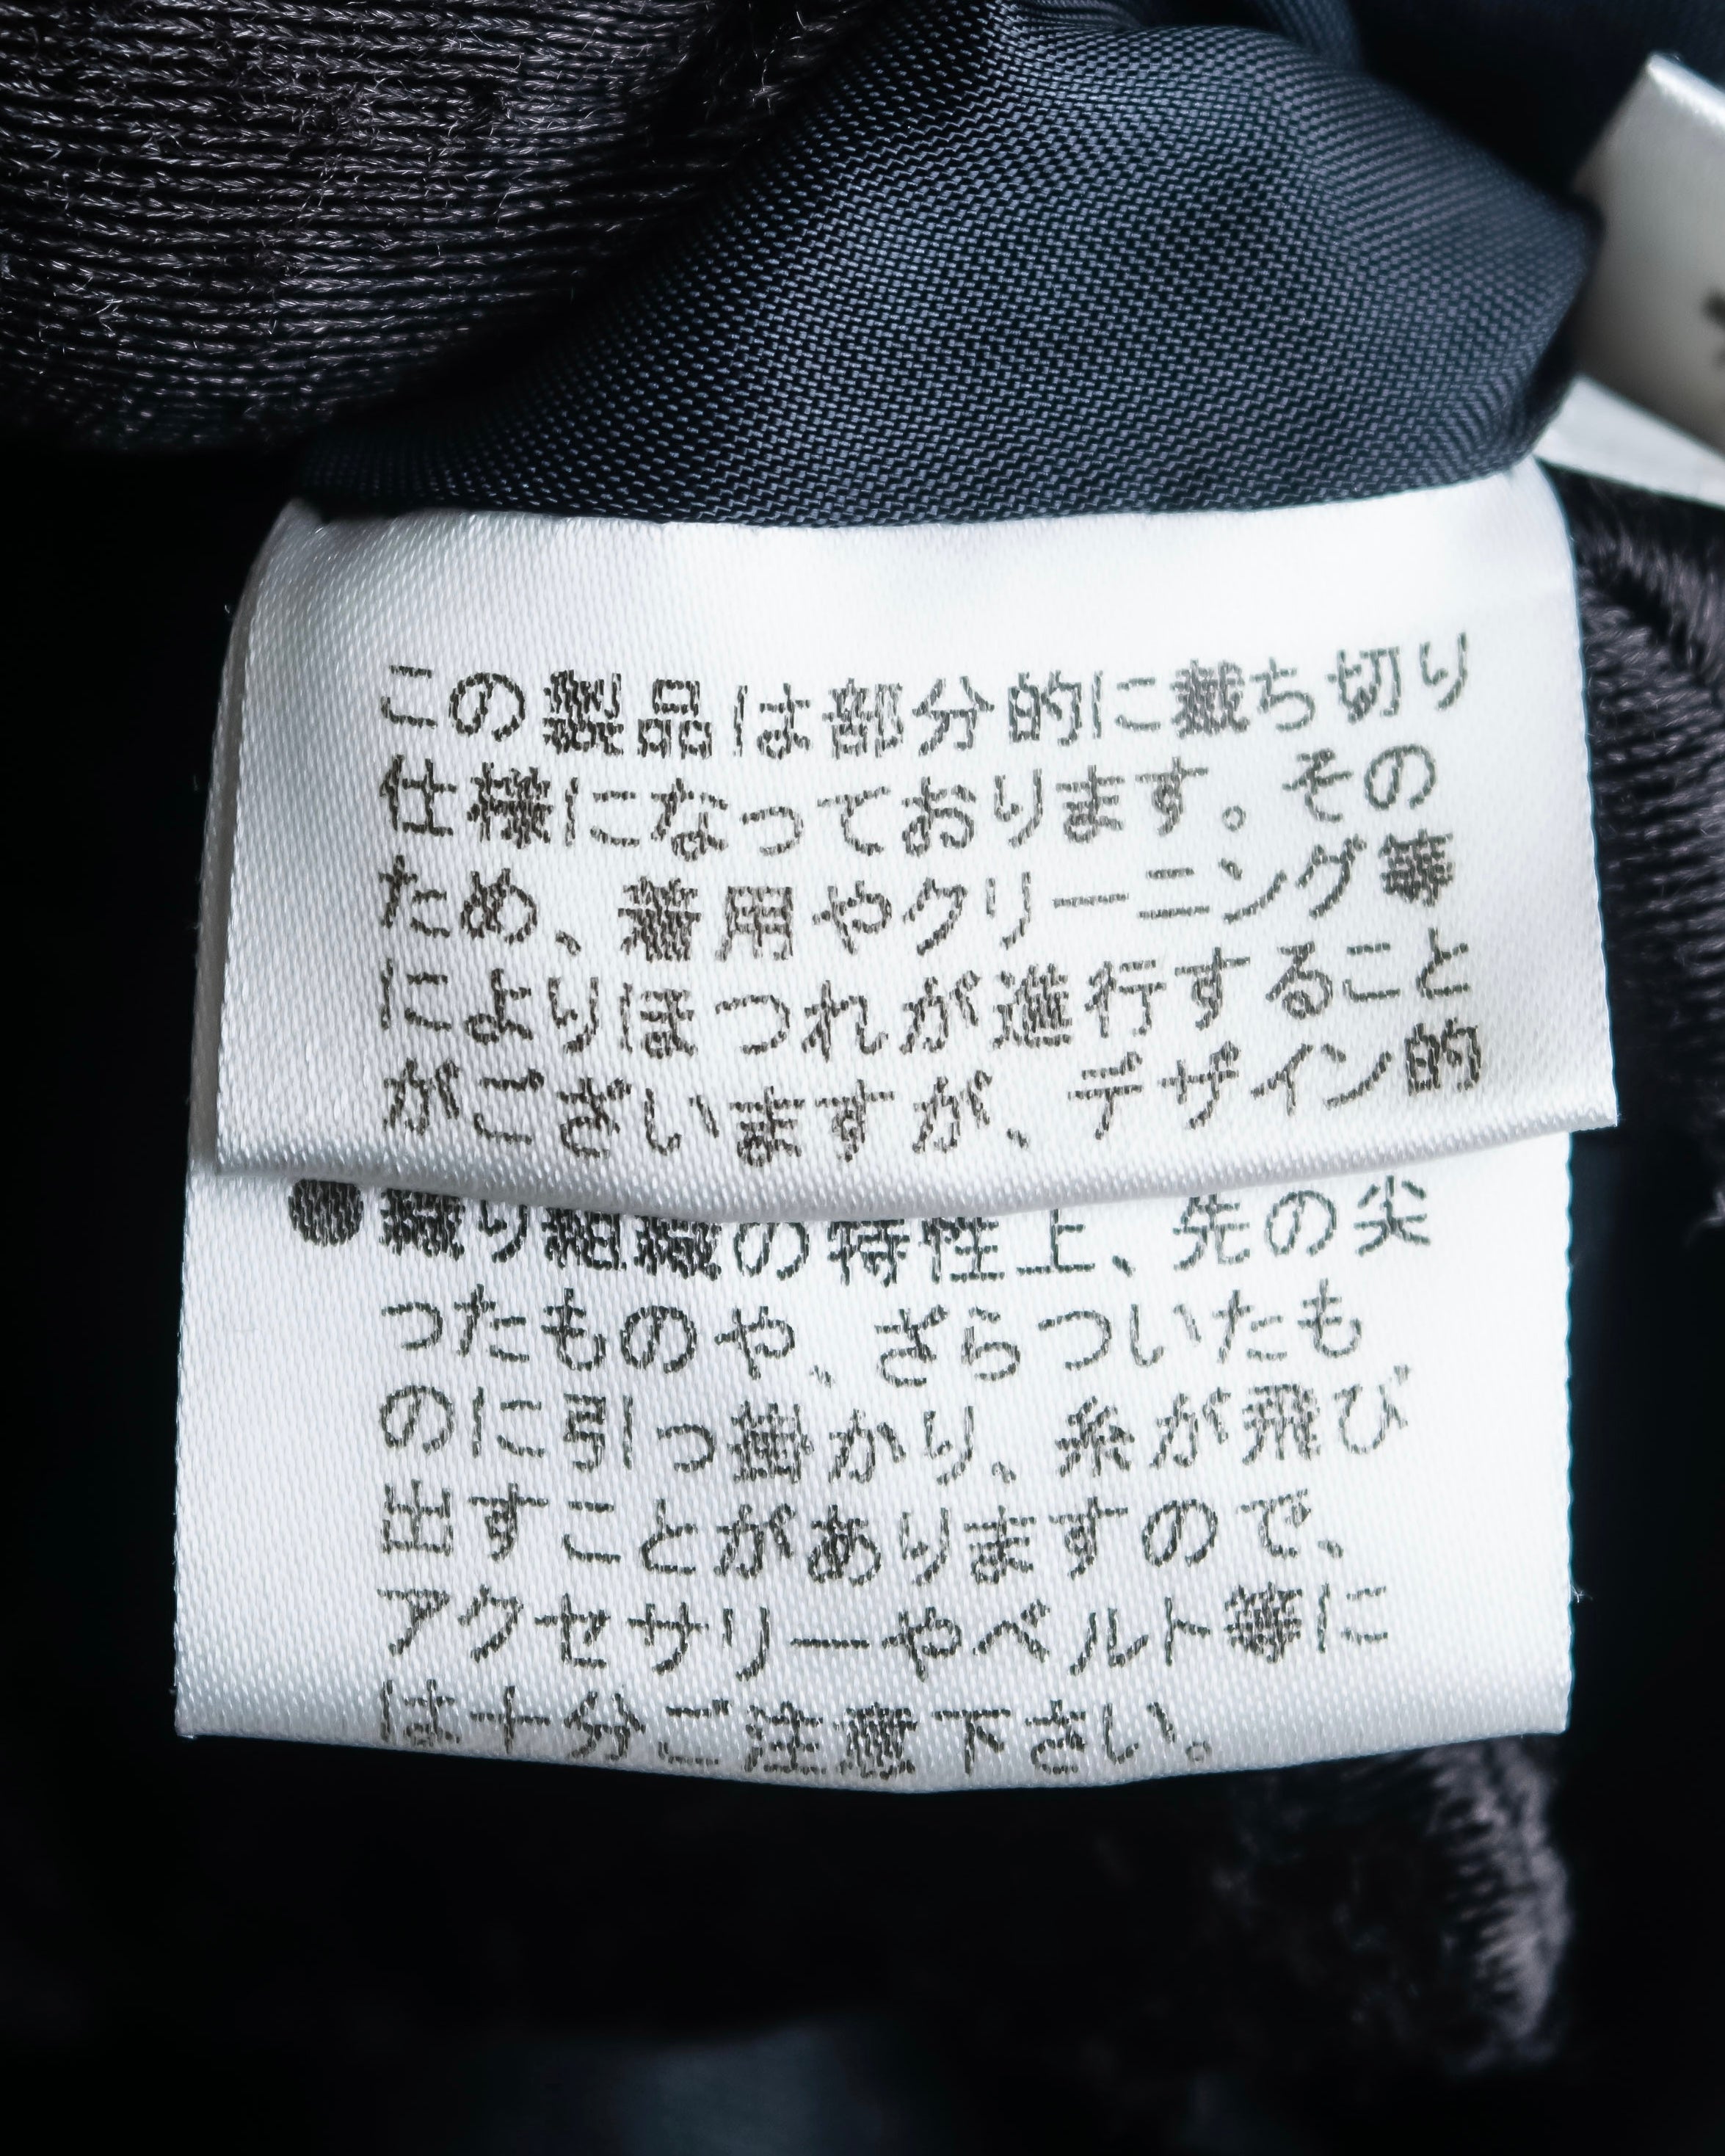 この製品は部分的に裁ち切り
仕様になっております。その
ため、着用やクリーニング等
によりほつれが進行すること
がございますが、デザイン的
●織り組織の特性上、先の尖
ったものや、ざらついたも
のに引っ掛かり、糸が飛び
出すことがありますので、
アクセサリーやベルト等に
は十分ご注意下さい。